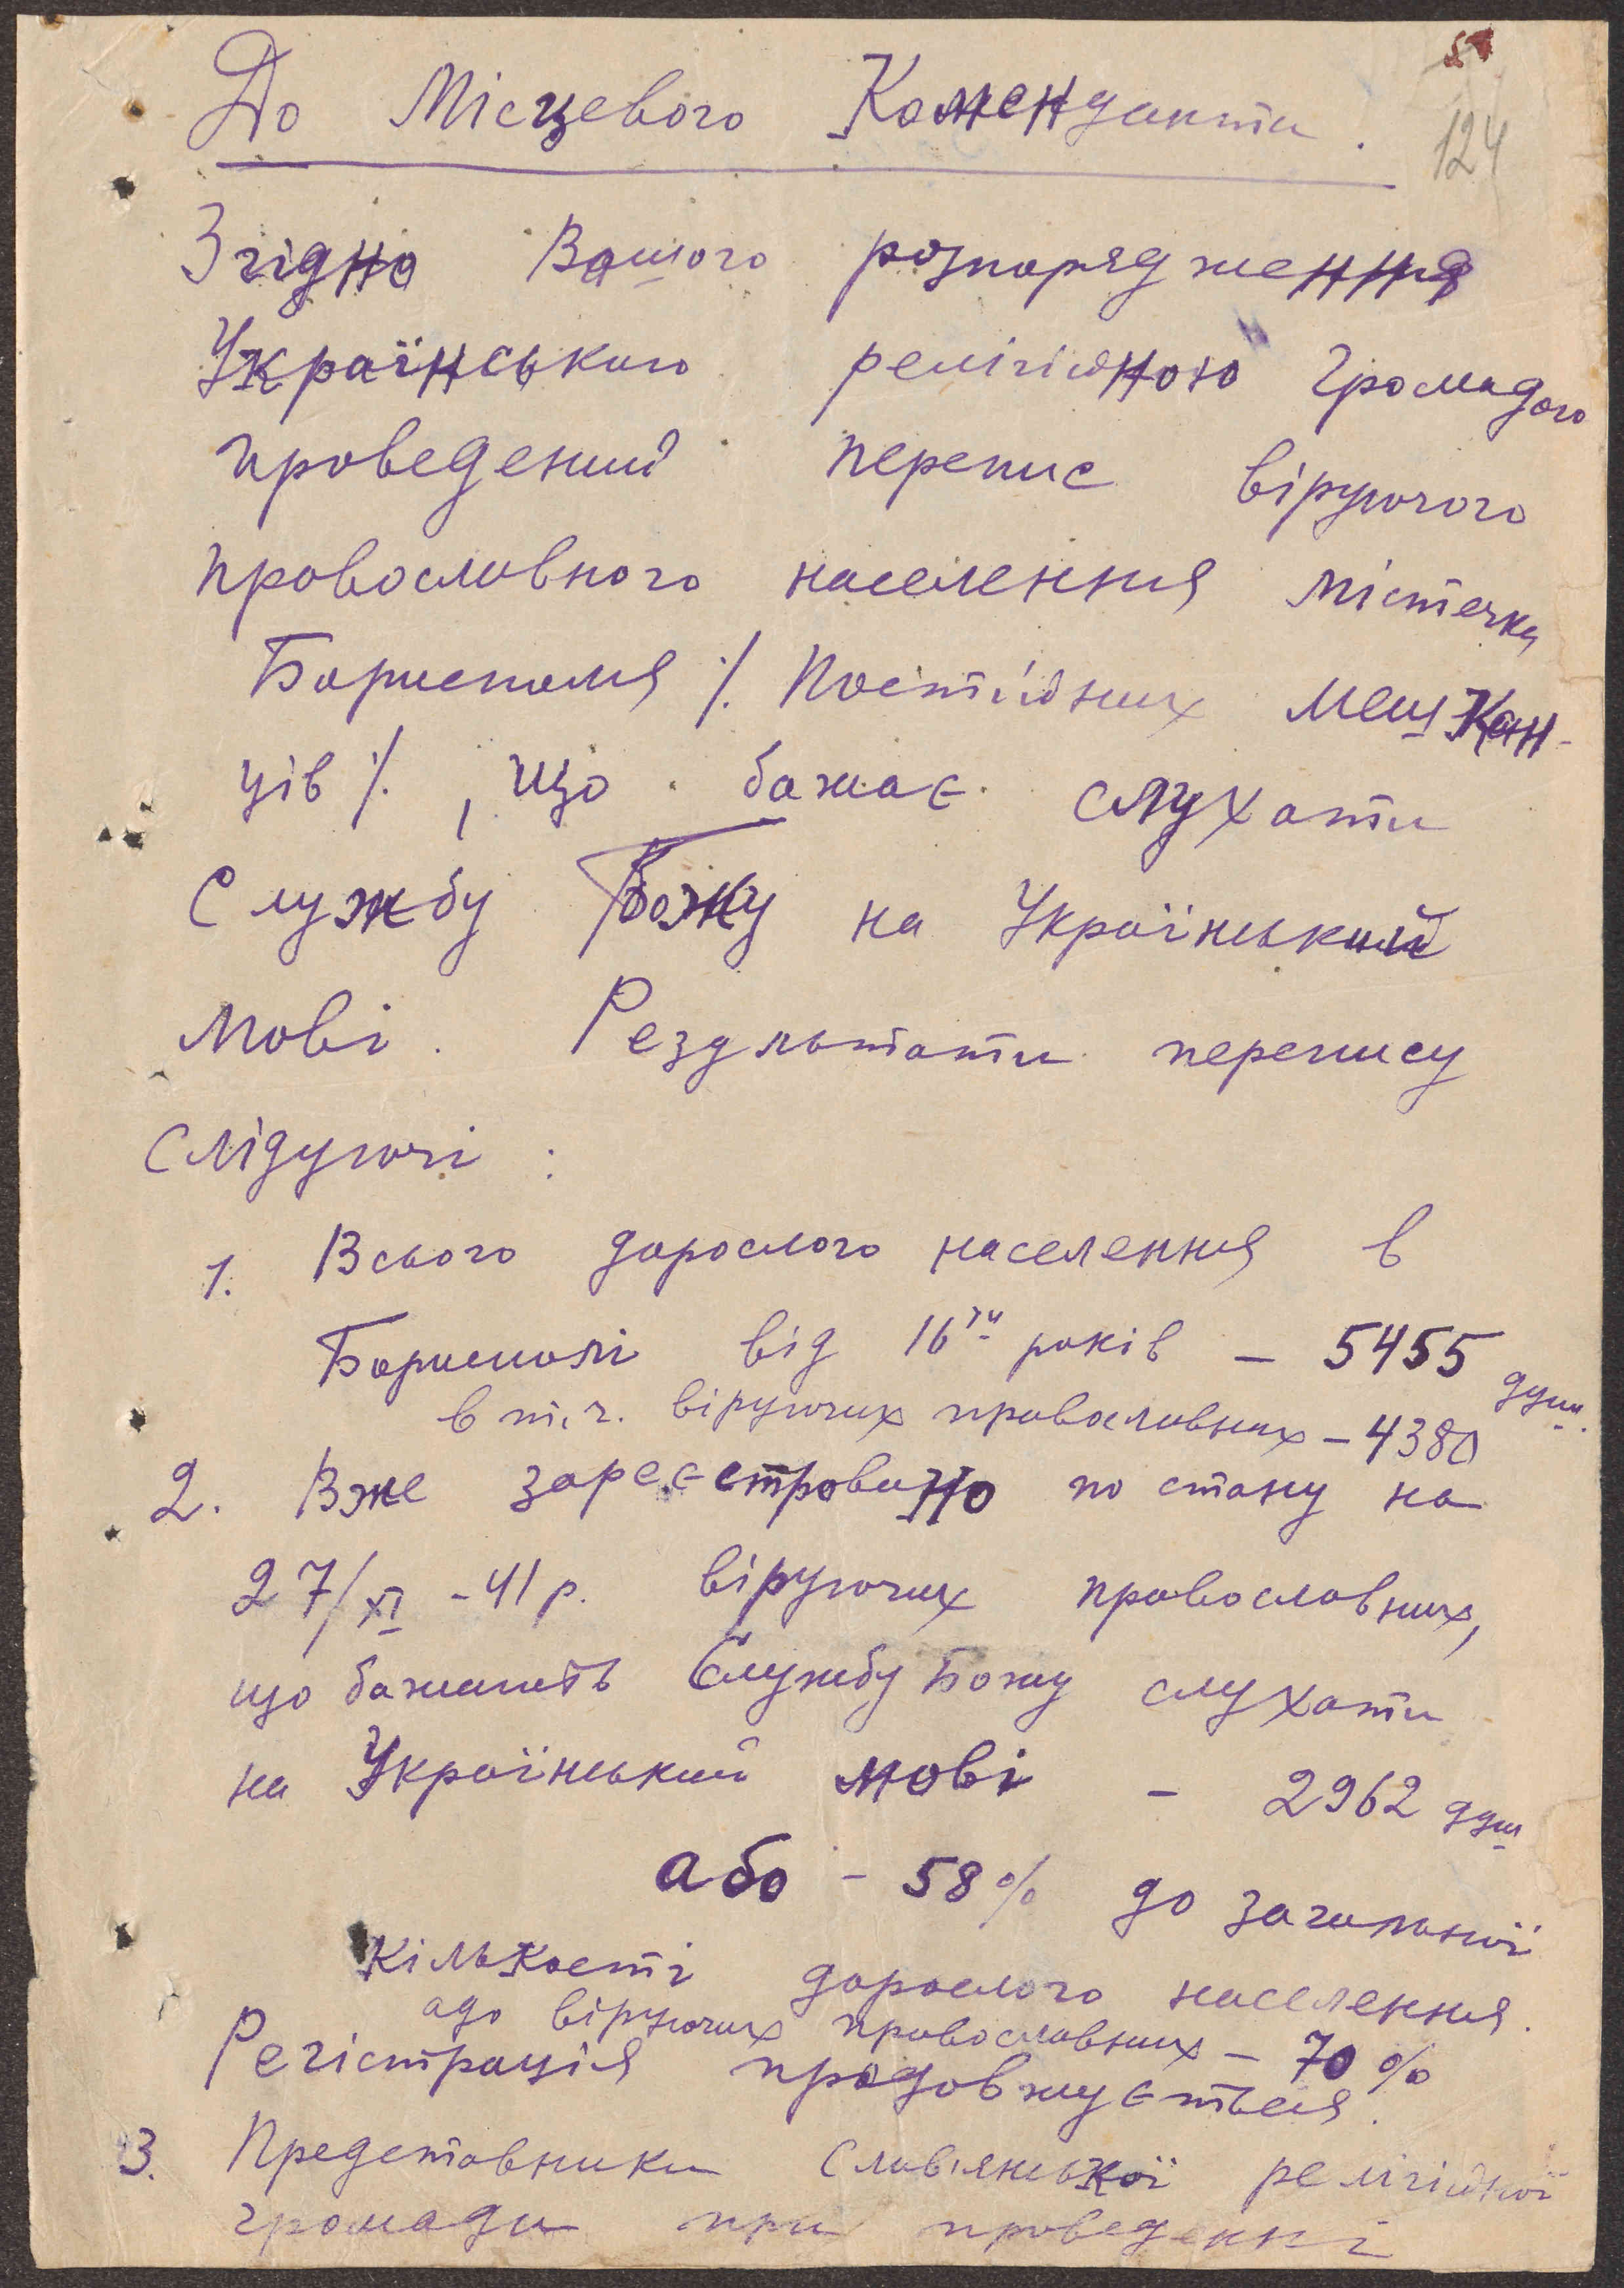 До Місцевого Коменданта.
124
Згідно Вашого розпорядження
Українського релігійною Громадою
проведений перепис віруючого
православного населення містечка
Бориспиля ./. Постійних мешкан-
ців ./. , що бажає слухати
Службу Божу на Український
мові. Результати перепису
слідуючі :
1. Всього дорослого населення в
Бориспилі від 16ти років – 5455 душ.
в т.ч. віруючих православних – 4380
2. Вже зареєстровано по стану на
27/XI -41 р. віруючих православних,
що бажають Службу Божу слухати
на Український мові – 2962 душ
або – 58% до загальної
кількости дорослого населення.
а до віруючих православних – 70%
Регістрація продовжується.
3. Представники Слав'янської релігійної
громади при проведенні